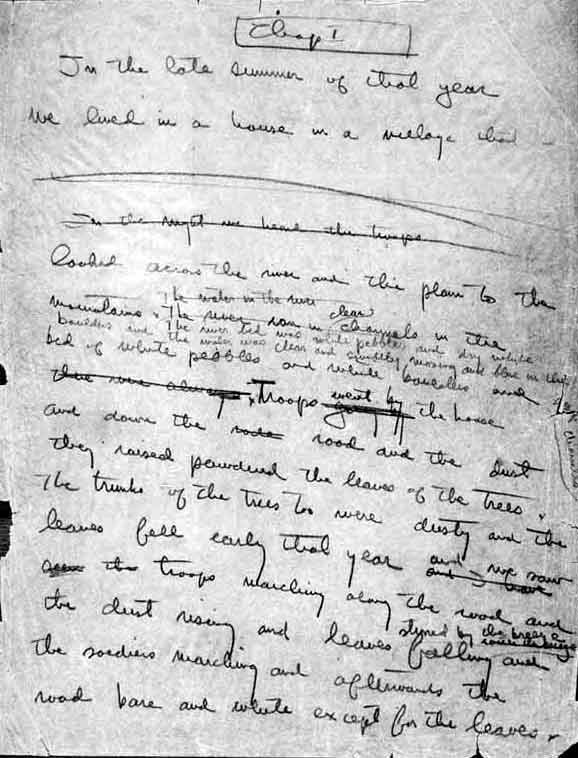 Chap I
In the late summer of that year
we lived in a house in a village that
In the night we heard the troops
looked across the river and the plain to the
The water in the river clear
mountains. The river ran in channels in the
The river bed was white pebbles and dry white
boulders and the water was clear and swiftly moving and blue in the
bed of white pebbles and white boulders and
channels
there were always Troops went by the house
and down the road and the dust
they raised powdered the leaves of the trees.
The trunks of the trees too were dusty and the
leaves fell early that year and we saw
and
seen the troops marching along the road and
the dust rising and leaves falling and
stirred by the breeze
the soldiers marching and afterwards the
road bare and white except for the leaves.